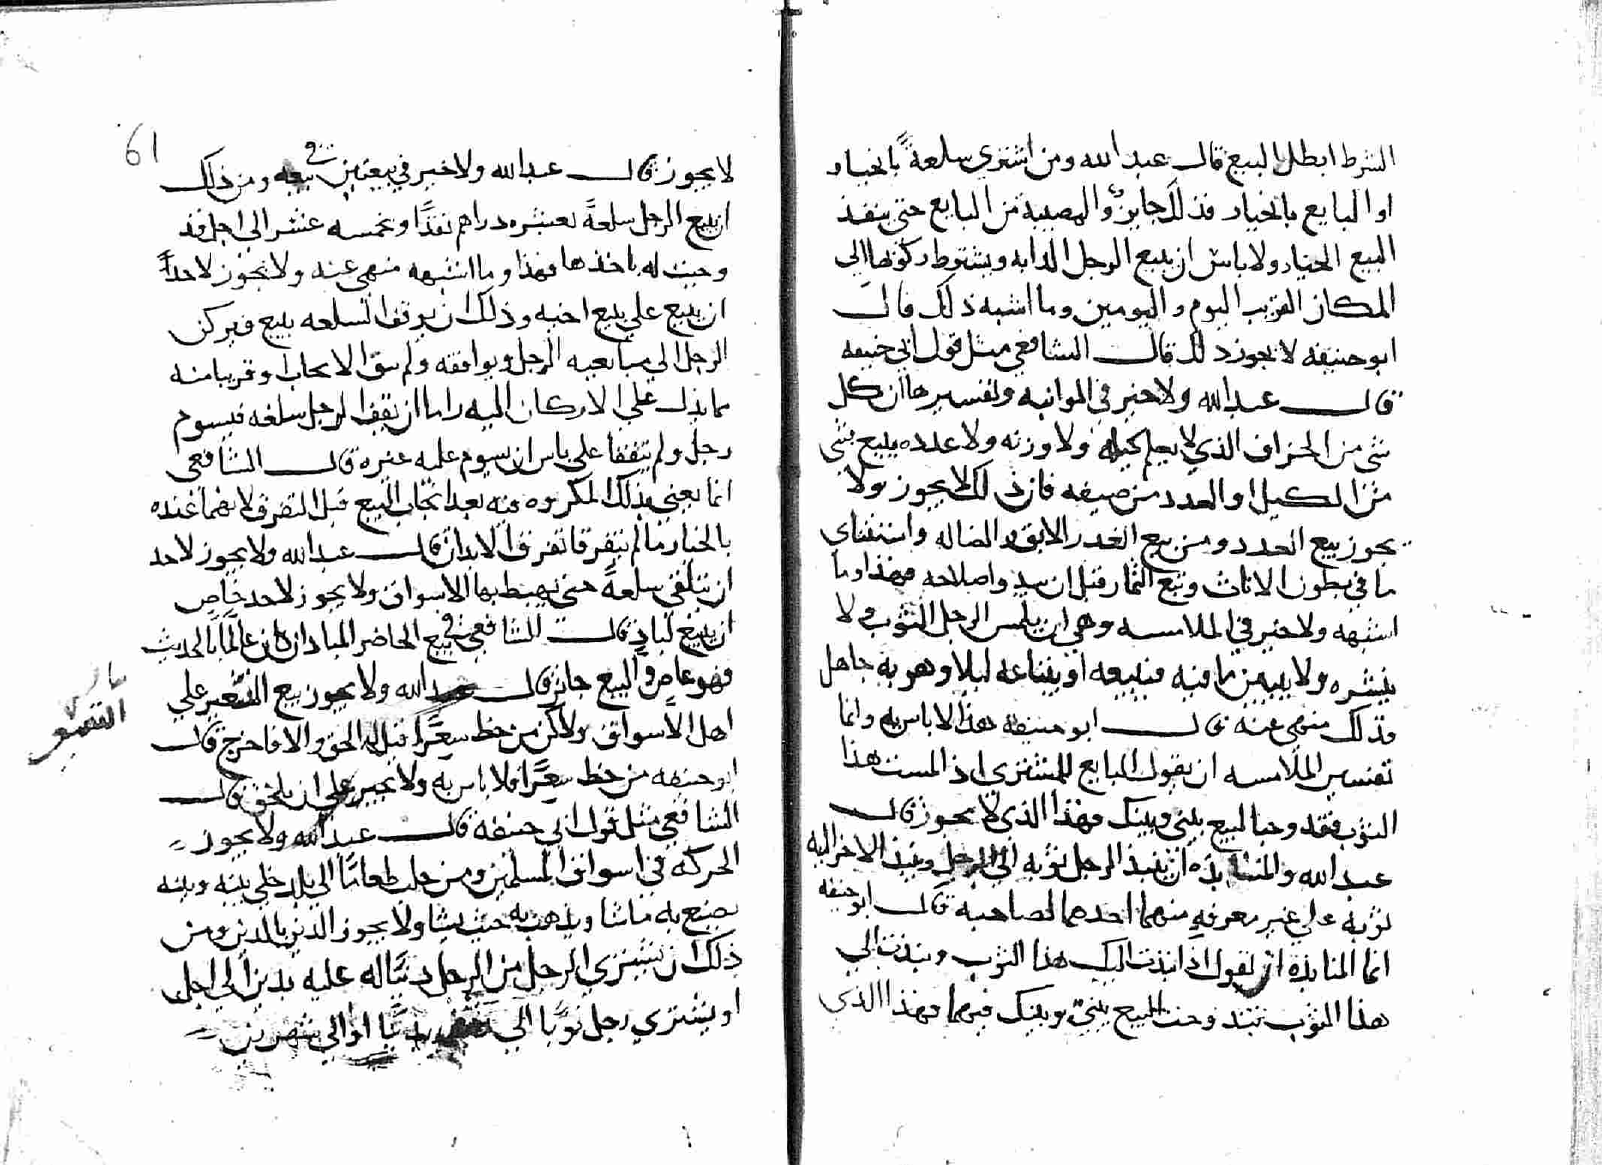 الشرط ابطل البيع قال عبد الله ومن اشترى سلعةً بالخيار
او البايع بالخيار فذلك جايز والمصيبة من البايع حتى ينفذ
البيع الخيار ولا باس ان يبيع الرجل الدابه ويشترط ركوبها الى
المكان القريب اليوم واليومين وما اشبه ذلك قال
ابو حنيفه لا يجوز ذلك قال الشافعي مثل قول ابي حنيفه
قال عبد الله ولا خير في المزابنه وتفسيرها ان كل
شي من الجزاف الذي لا يعلم كيله ولا وزنه ولا عدده بيع بشي
من الكيل او العدد من صنفه فان ذلك لا يجوز ولا
يجوز بيع الغرر ومن بيع الغرر الابق والضاله واستثناى
ما في بطون الاناث وبيع الثمار قبل ان يبدو اصلاحه فهذا وما
اشبهه ولا خير في الملامسه وهي ان يلمس الرجل الثوب ولا
ينشره ولا يبين ما فيه فيبيعه او يبتاعه ليلا وهو به جاهل
فذلك منهي عنه قال ابو حنيفة هذا لا باس به وانما
تفسير الملامسه ان يقول البايع للمشتري اذ المست هذا
الثوب فقد وجب البيع بيني وبينك فهذا الذي لا يجوز قال
عبد الله والمنابذه ان ينبذ الرجل ثوبه الى الرجل وينبذ الاخر اليه
ثوبه على غير معرفه منهما احدهما لصاحبه قال ابو حنيفه
انما المنابذه ان يقول اذا نبذت اليك هذا الثوب ونبذت الي
هذا الثوب وجب البيع بيني وبينك فيهما فهذا الذي
61
لا يجوز قال عبد الله ولا خير في بيعتين في بيعه ومن ذلك
ان يبيع الرجل سلعةً بعشره دراهم نقدًا وخمسه عشر الى اجل قد
وجبت له باخذها فهذا وما اشبهه منهي عنه ولا يجوز لاحدًا
ان يبيع على بيع اخيه وذلك ان يوقف السلعه يبيع فيركن
الرجل الى مبايعيه الرجل ويوافقه ولم يبق الا الايجاب او قريبا منه
مما يدل على الاركان اليه واما ان يقف الرجل سلعه فيسوم
رجل ولم يتفقا على باس ان يسوم عليه غيره قال الشافعي
انما يعني بذلك المكروه فيه بعد ايجاب البيع قبل التفرق لانهما عنده
بالخيار مالم يتفرقا تفرق الابدان قال عبد الله ولا يجوز لاحد
ان يتلقى سلعةً حتى يهبط بها الاسواق ولا يجوز لاحد حاض
ان يبيع لباد قال الشافعي في بيع الحاضر المباد ان كان عالمًا بالحديث
فهو عاص والبيع جايز قال عبد الله ولا يجوز بيع التسعير على
اهل الاسواق ولاكن من حط سعرًا قيل له الحق والا فاخرج قال
ابو حنيفه من حط سعرًا فلا باس به ولا يجبر على ان يلحق قال
الشافعي مثل قول ابي حنيفه قال عبد الله ولا يجوز
الحركه في اسواق المسلمين ومن جلب طعامًا الى بلد خلي بينه وبينه
يصنع به ماشا ويذهب به حيث يشا ولا يجوز الدين بالدين ومن
ذلك ان يشتري الرجل من الرجل دينًا له عليه بدين الى اجل
او يشتري رجل ثوبًا الى او الى شهرين
التسعير